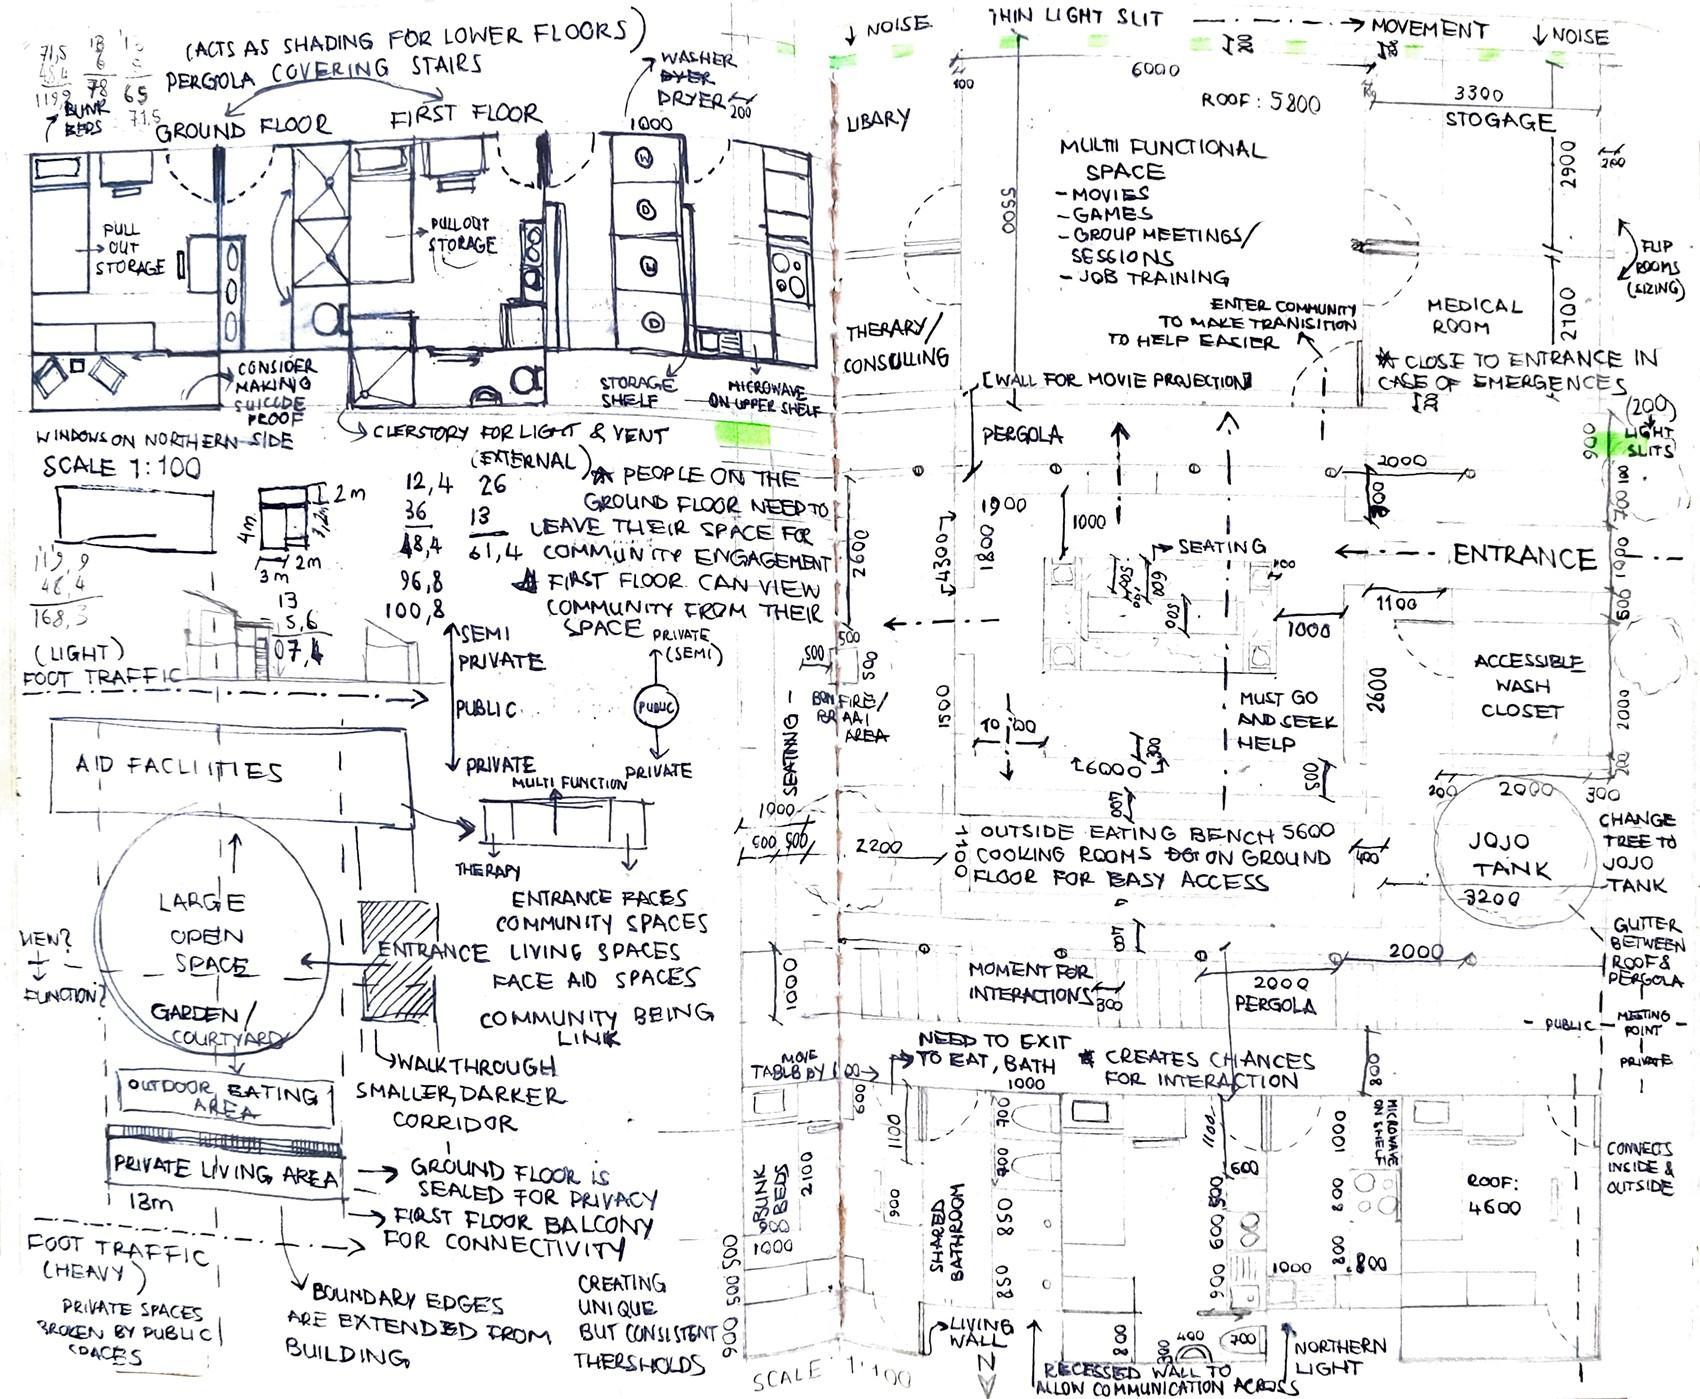 71,5
48,4
119,9
18
6
78
65
71,5
(ACTS AS SHADING FOR LOWER FLOORS)
PERGOLA COVERING STAIRS
BUNK
BEDS
GROUND FLOOR
FIRST FLOOR
WASHER
DYER
DRYER
200
1000
W
D
W
D
PULL
OUT
STORAGE
PULLOUT
STORAGE
CONSIDER
MAKING
SUICIDE
PROOF
STORAGE
SHELF
MICROWAVE
ON UPPER SHELF
WINDOWS ON NORTHERN SIDE
CLERSTORY FOR LIGHT & VENT
(EXTERNAL)
SCALE 1:100
2m
4m
1,2m
2m
3m
119,9
48,4
168,3
13
5,6
07,4
12,4
36
48,4
96,8
100,8
26
13
61,4
* PEOPLE ON THE
GROUND FLOOR NEED TO
LEAVE THEIR SPACE FOR
COMMUNITY ENGAGEMENT
* FIRST FLOOR CAN VIEW
COMMUNITY FROM THEIR
SPACE
(LIGHT)
FOOT TRAFFIC
SEMI
PRIVATE
PUBLIC
PRIVATE
PRIVATE
(SEMI)
PUBLIC
PRIVATE
AID FACILITIES
MULTI FUNCTION
THERAPY
LARGE
OPEN
SPACE
GARDEN/
COURTYARD
MEN?
FUNCTION?
ENTRANCE
ENTRANCE FACES
COMMUNITY SPACES
LIVING SPACES
FACE AID SPACES
COMMUNITY BEING
LINK
WALKTHROUGH
SMALLER, DARKER
CORRIDOR
OUTDOOR EATING
AREA
PRIVATE LIVING AREA
13m
GROUND FLOOR IS
SEALED FOR PRIVACY
FIRST FLOOR BALCONY
FOR CONNECTIVITY
FOOT TRAFFIC
(HEAVY)
PRIVATE SPACES
BROKEN BY PUBLIC
SPACES
BOUNDARY EDGES
ARE EXTENDED FROM
BUILDING
CREATING
UNIQUE
BUT CONSISTENT
THERSHOLDS
NOISE
THIN LIGHT SLIT
MOVEMENT
NOISE
200
200
6000
100
ROOF: 5800
3300
STOGAGE
2900
200
LIBARY
5500
MULTI FUNCTIONAL
SPACE
- MOVIES
- GAMES
- GROUP MEETINGS/
SESSIONS
- JOB TRAINING
FLIP
ROOMS
(SIZING)
ENTER COMMUNITY
TO MAKE TRANISITION
TO HELP EASIER
MEDICAL
ROOM
2100
THERARY/
CONSULLING
* CLOSE TO ENTRANCE IN
CASE OF EMERGENCES
[WALL FOR MOVIE PROJECTION]
PERGOLA
200
(200)
LIGHT
SLITS
900
100
700
1000
500
2000
200
2000
900
1900
1000
2600
4300
1800
SEATING
500
600
100
500
100
ENTRANCE
1100
1000
500
500
500
BON FIRE/
BRAAI
AREA
SEATING
1500
1000
MUST GO
AND SEEK
HELP
2600
ACCESSIBLE
WASH
CLOSET
300
6000
500
400
200
2000
300
1000
500
500
2200
1100
OUTSIDE EATING BENCH 5600
COOKING ROOMS ON GROUND
FLOOR FOR EASY ACCESS
400
JOJO
TANK
3200
CHANGE
TREE TO
JOJO
TANK
GUTTER
BETWEEN
ROOF &
PERGOLA
400
1000
MOMENT FOR
INTERACTIONS
300
2000
PERGOLA
2000
PUBLIC
MEETING
POINT
PRIVATE
MOVE
TABLE BY 100
NEED TO EXIT
TO EAT, BATH
* CREATES CHANCES
FOR INTERACTION
800
1000
600
1100
BUNK
BEDS
2100
900
1000
900
SHARED
BATHROOM
700
700
850
850
1100
600
500
600
900
1000
800
800
800
1000
MICROWAVE
ON SHELF
ROOF:
4600
CONNECTS
INSIDE &
OUTSIDE
500
500
900
SCALE 1:100
LIVING
WALL
N
800
300
400
700
RECESSED WALL TO
ALLOW COMMUNICATION ACROSS
NORTHERN
LIGHT